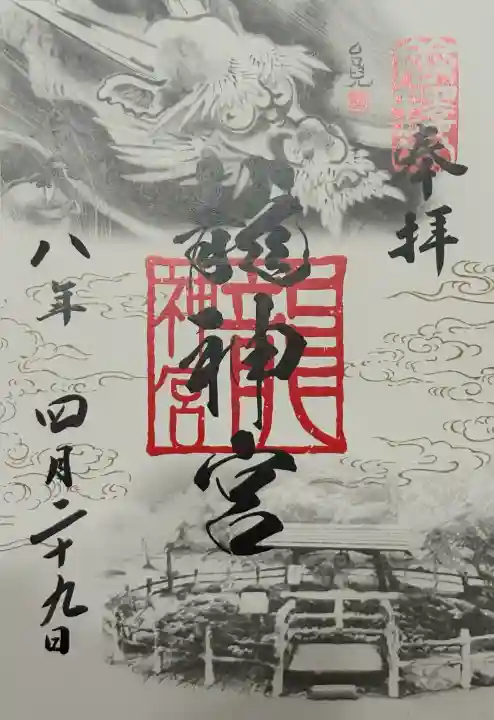 奉拝
龍神宮
龍神宮
八年 四月二十九日